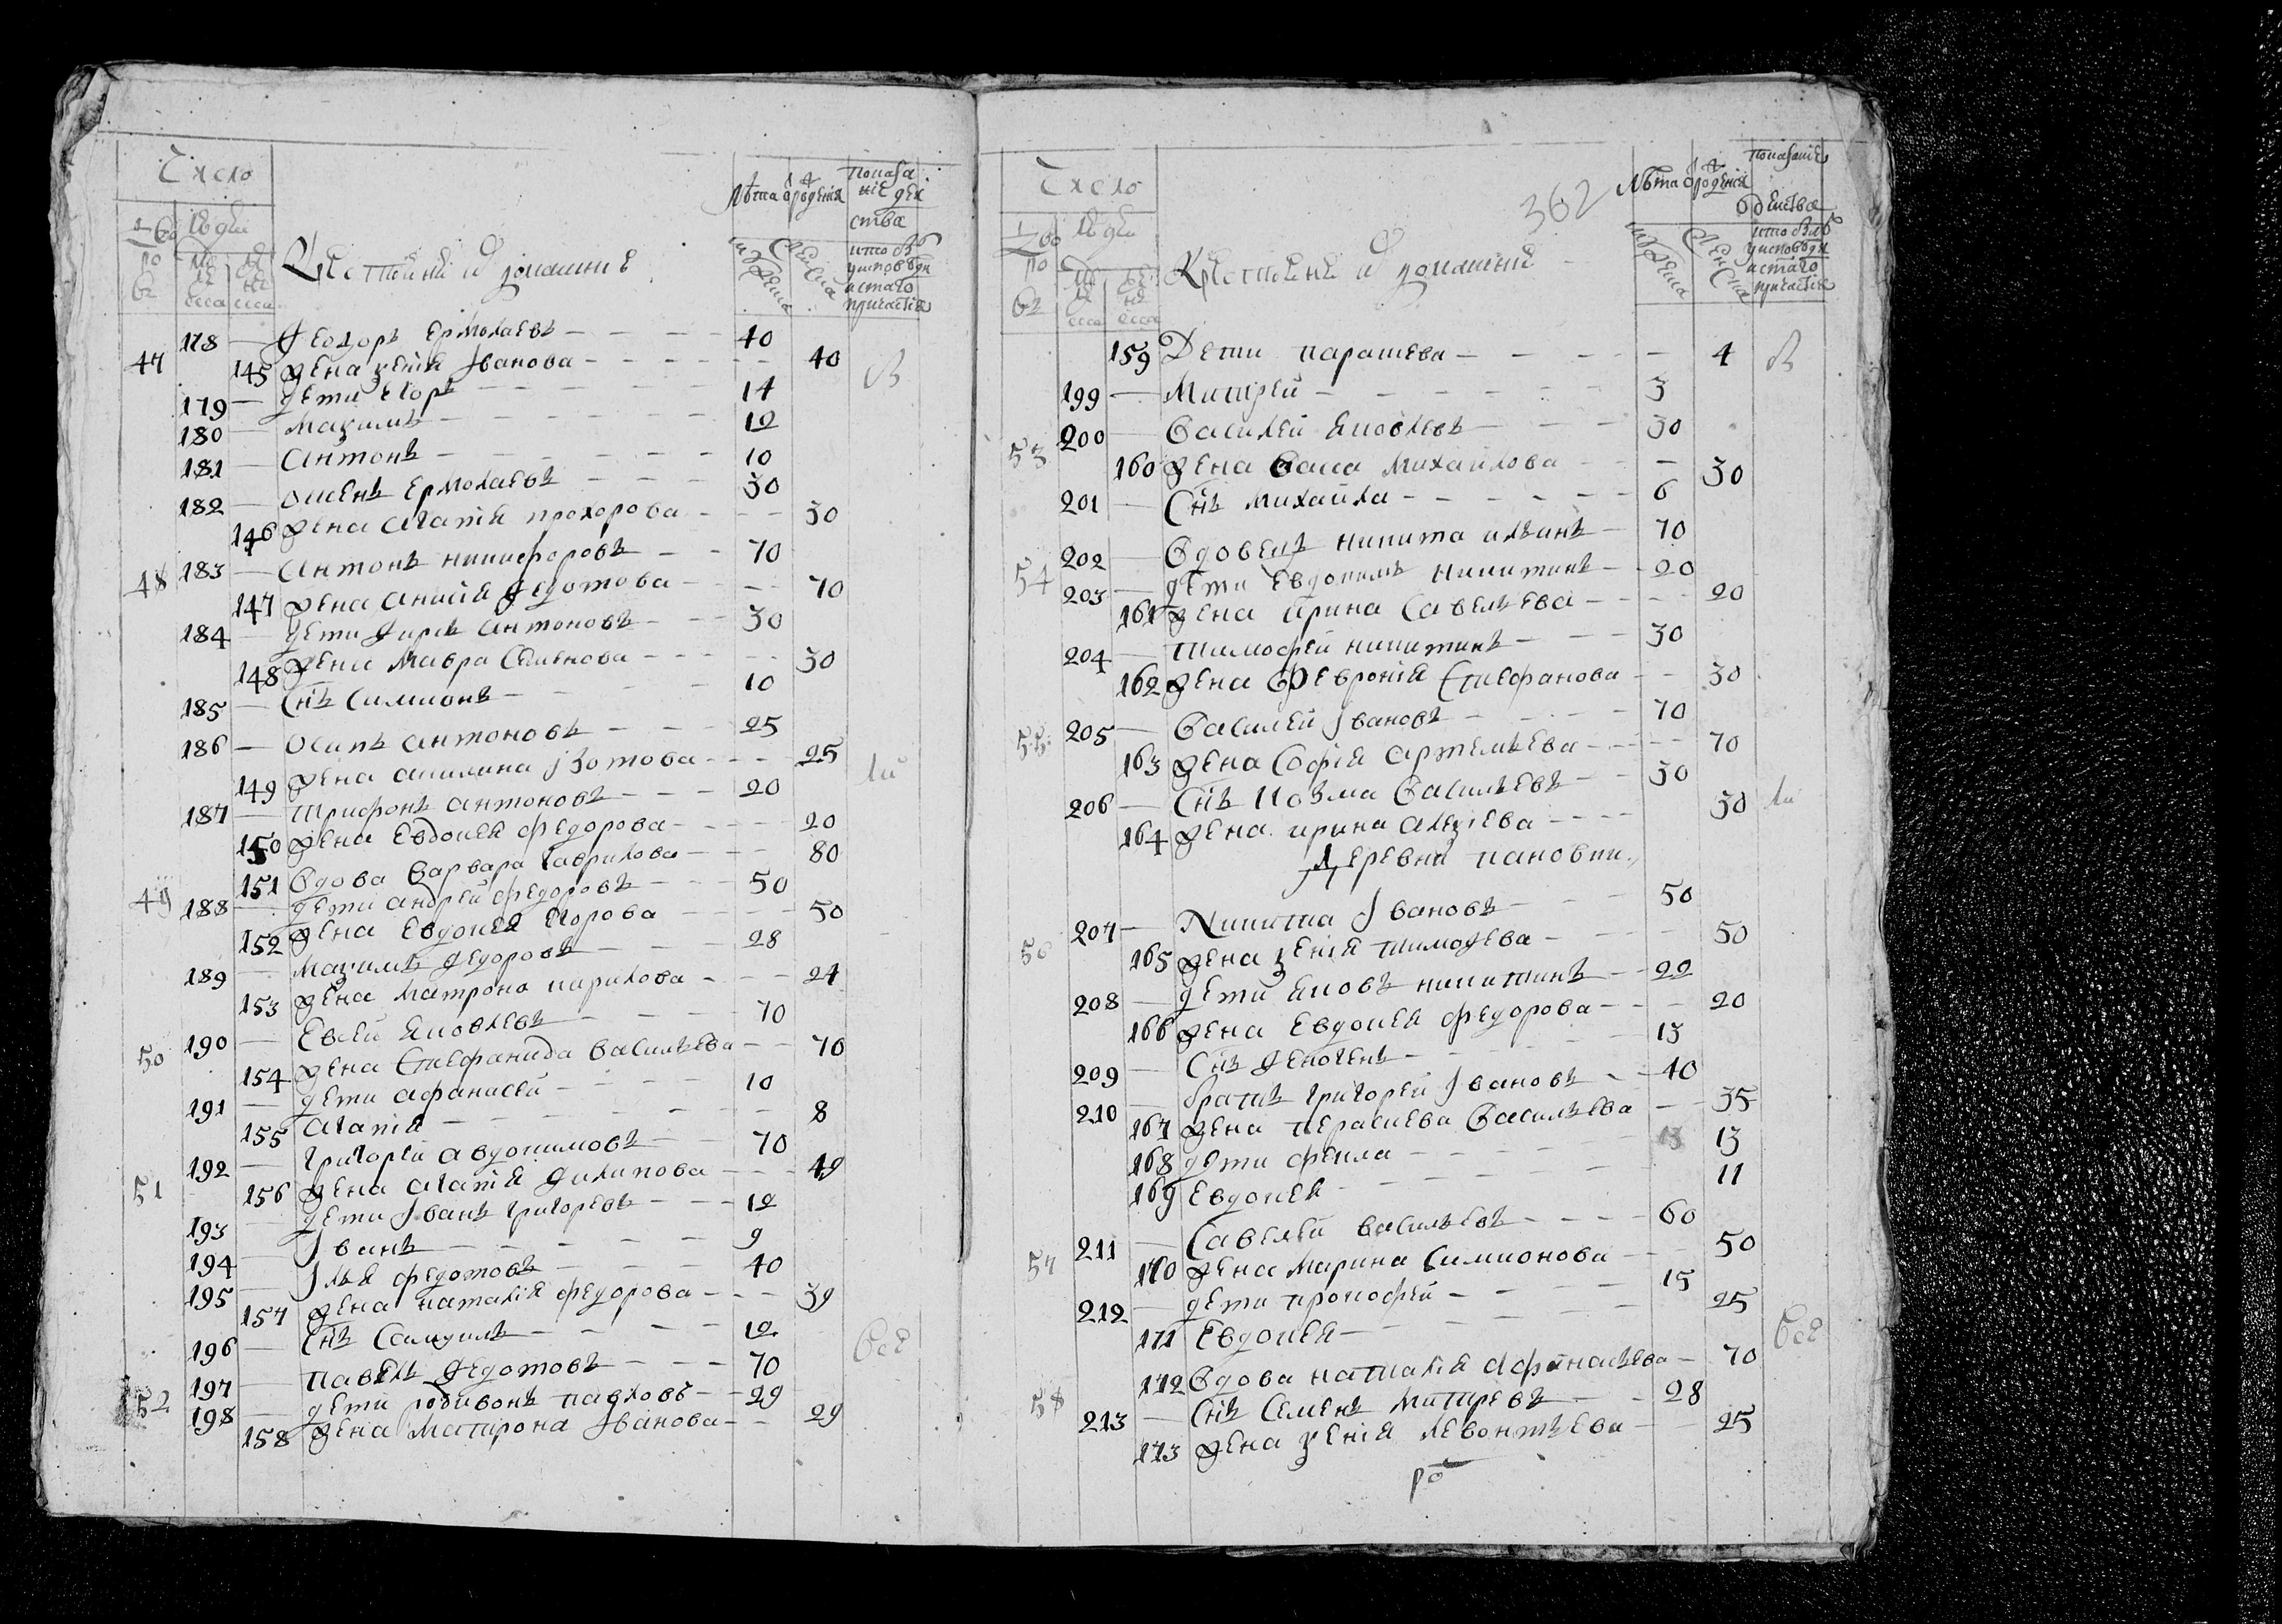 Число
Люди
Лѣта ѿ рождения
Показание действа
Крестьяне и домашние
47 178 — Феодоръ Ермолаевъ — 40
145 жена Ксения Иванова — 40 В
179 — дети Егоръ — 14
180 — Максимъ — 12
181 — Антонъ — 10
182 — Семенъ Ермолаевъ — 30
146 жена Агапия Прохорова — 30
48 183 — Антонъ Никифоровъ — 70
147 жена Анисия Федотова — 70
184 — дети Фирсъ Антоновъ — 30
148 жена Мавра Семенова — 30
185 — Снъ Симионъ — 10
186 — Осипъ Антоновъ — 25
149 жена Акилина Изотова — 25
187 — Трифонъ Антоновъ — 20
150 жена Евдокея Федорова — 20
49 151 Вдова Варвара Гаврилова — 80
188 — дети Андрей Федоровъ — 50
152 жена Евдокея Егорова — 50
189 — Максимъ Федоровъ — 28
153 жена Матрона Кирилова — 24
50 190 — Евсей Яковлевъ — 70
154 жена Степанида Васильева — 70
191 — дети Афанасей — 10
155 Агапия — 8
51 192 — Григорей Авдокимовъ — 70
156 жена Агапия Филипова — 49
193 — дети Иванъ Григорьевъ — 12
194 — Иванъ — 9
195 — Илья Федотовъ — 40
157 жена Наталия Федорова — 39
196 — Снъ Самуилъ — 12
52 197 — Павелъ Федотовъ — 70
198 — дети Родивонъ Павловъ — 29
158 жена Матрона Иванова — 29
362
Число
Люди
Лѣта ѿ рождения
Показание действа
Крестьяне и домашние
159 Дети Парашева — 4 В
199 — Митрей — 3
53 200 — Василей Яковлевъ — 30
160 жена Васса Михайлова — 30
201 — Снъ Михайла — 6
54 202 — Вдовецъ Никита Ильинъ — 70
203 — дети Евдокимъ Никитинъ — 20
161 жена Ирина Савельева — 20
204 — Тимофей Никитинъ — 30
162 жена Феврония Стефанова — 30
55 205 — Василей Ивановъ — 70
163 жена София Артемьева — 70
206 — Снъ Козма Васильевъ — 30
164 жена Ирина Алексиева — 30
Деревни Пановки
56 207 — Никита Ивановъ — 50
165 жена Ксения Тимофева — 50
208 — дети Яковъ Никитинъ — 22
166 жена Евдокея Федорова — 20
209 — Снъ Феногенъ — 13
210 — братъ Григорей Ивановъ — 40
167 жена Перасиева Васильева — 35
168 дети Фекла — 13
169 Евдокея — 11
57 211 — Савелей Васильевъ — 60
170 жена Марина Симионова — 50
212 — дети Прокофей — 15
171 Евдокея — 25
58 172 Вдова Наталия Афанасьева — 70
213 — Снъ Семенъ Митревъ — 28
173 жена Ксения Левонтьева — 25